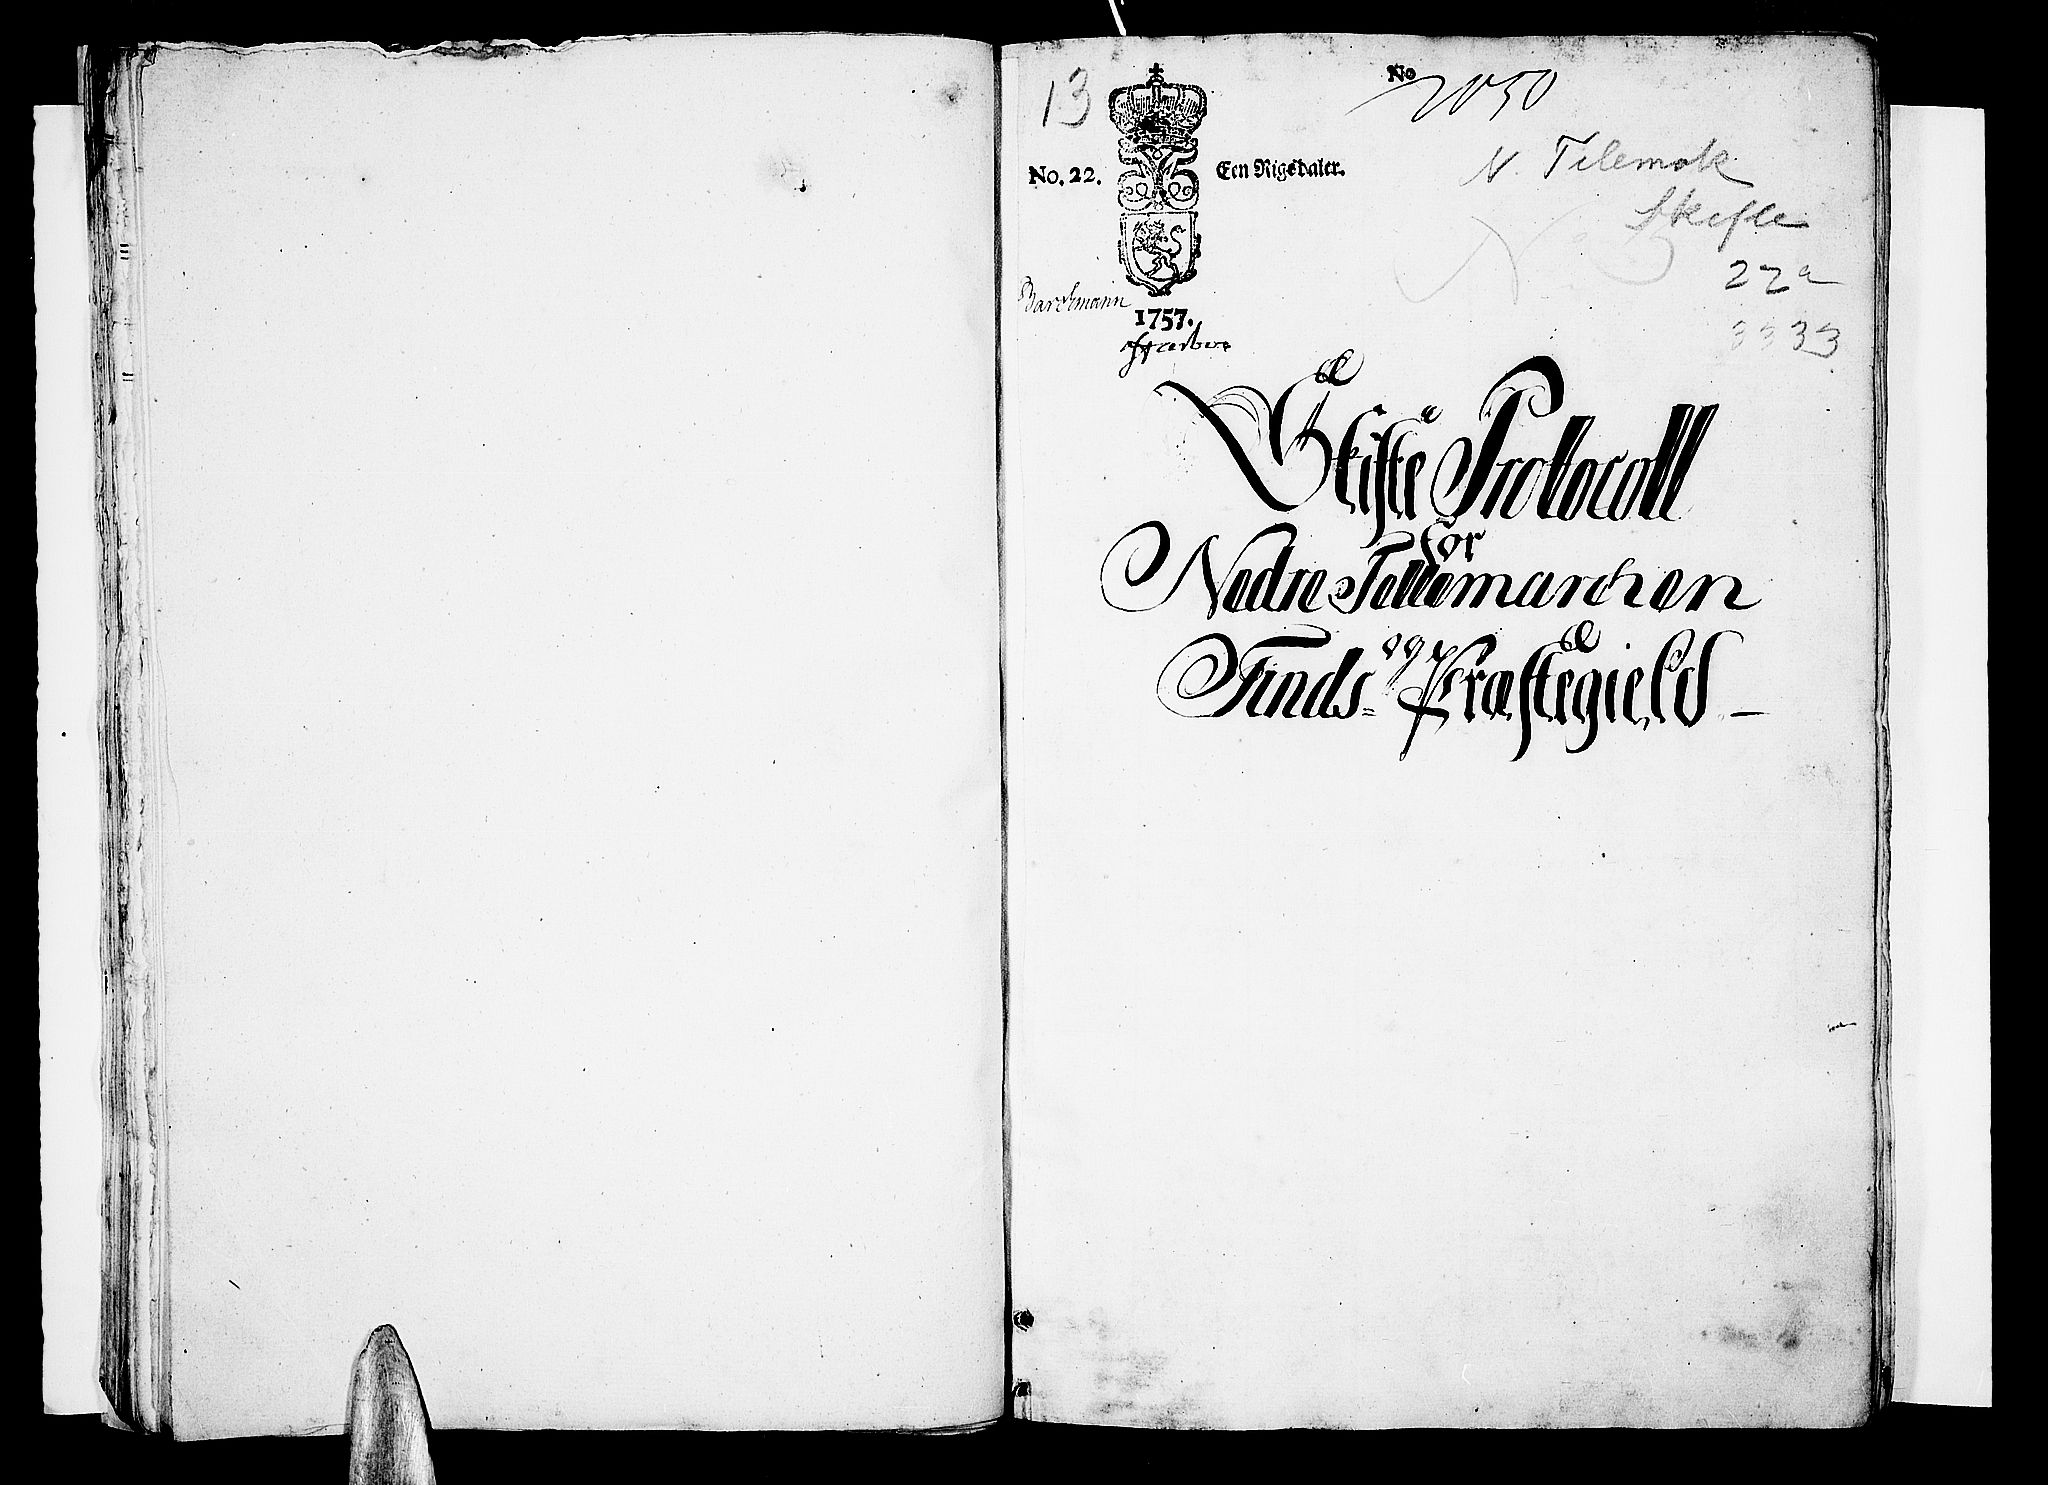 13
No 2050
No. 22. Een Rigsdaler.
N. Telemark
Skifte
22a
3333
Barchmann
1757.
Skifte Protocoll
for
Nedre Tellemarchen
og
Tinds= Præstegield